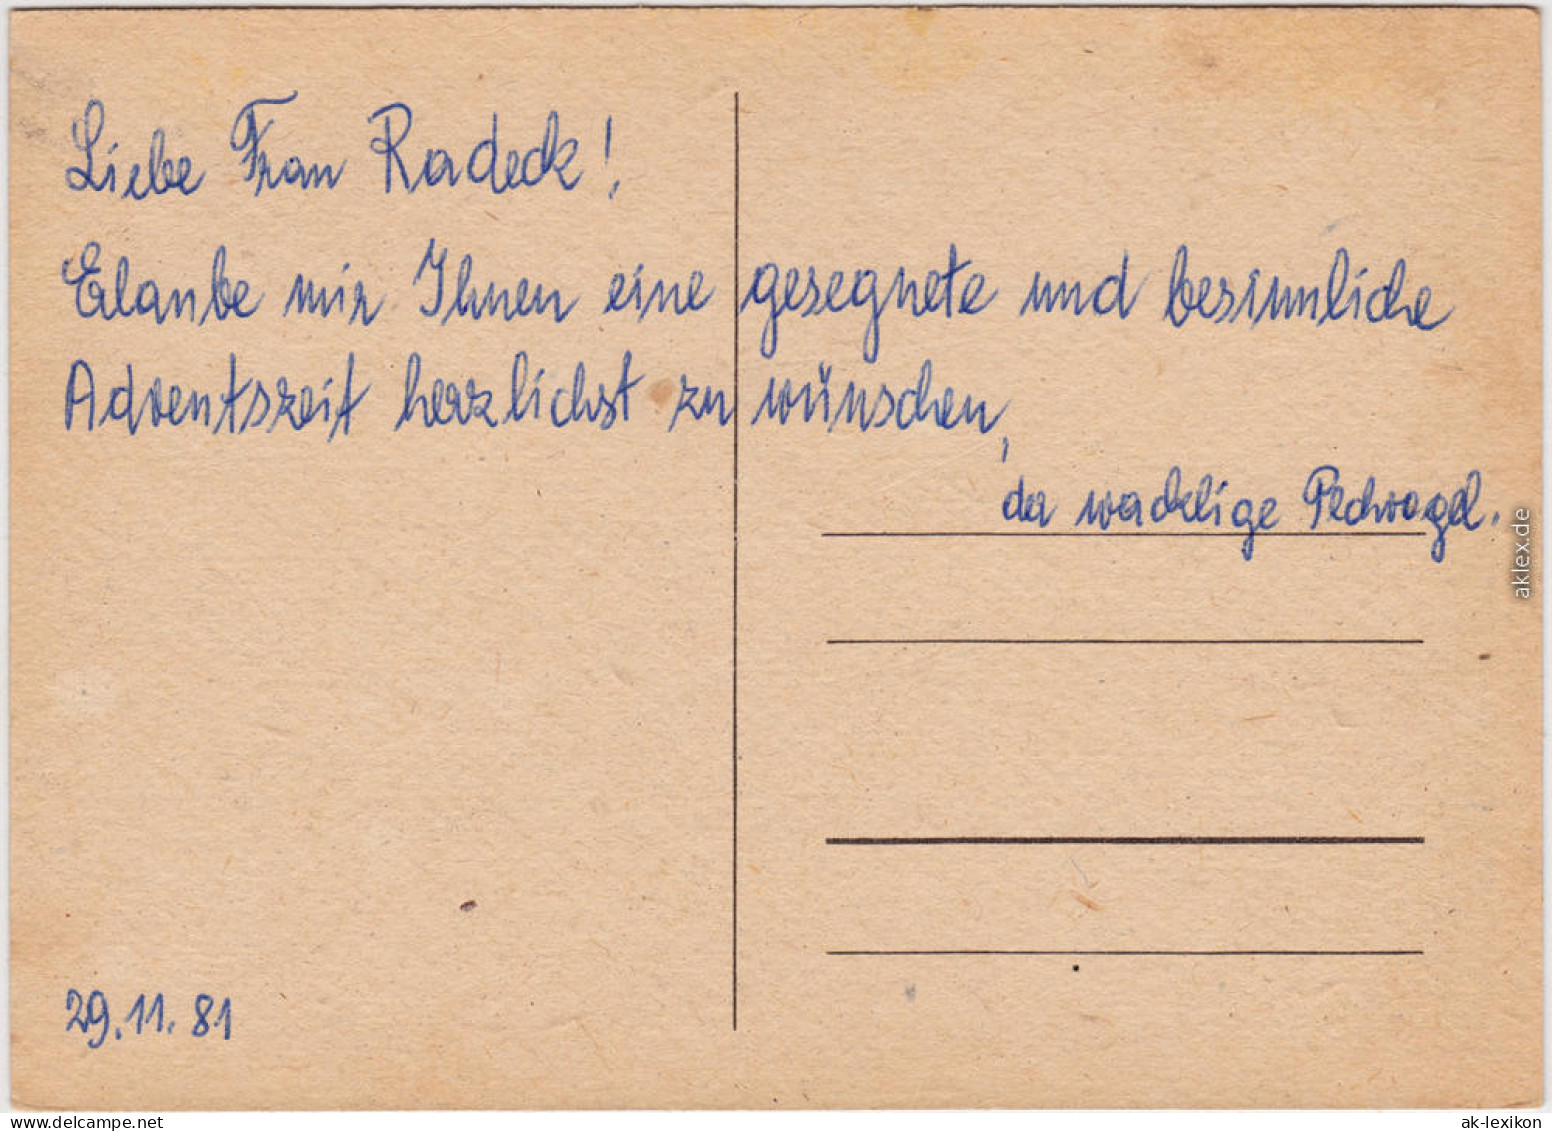 Liebe Frau Radeck!
Erlaube mir Ihnen eine gesegnete und besinnliche
Adventszeit herzlichst zu wünschen,
der wackelige Pechvogel.
29.11.81
aklex.de
ak-ansichtskarten.de
ak-lexikon